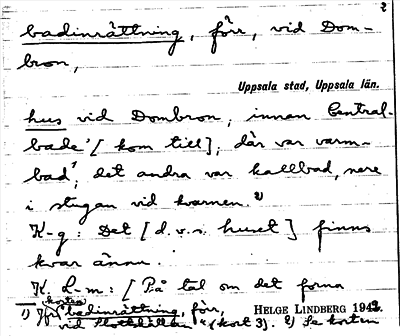 2
badinrättning, förr, vid Dom-
bron,
Uppsala stad, Uppsala län.
hus vid Dombron, innan Central-
bade' [kom till]; där var varm-
bad¹, det andra var kallbad, nere
i stugan vid kvarnen.²)
K-g: Det [d.v.s. huset] finns
kvar ännu.
K. L-m: [På tal om det forna
1) Jfr korten badinrättning, förr,
HELGE LINDBERG 1942.
vid (kort 3). 2) Se korten